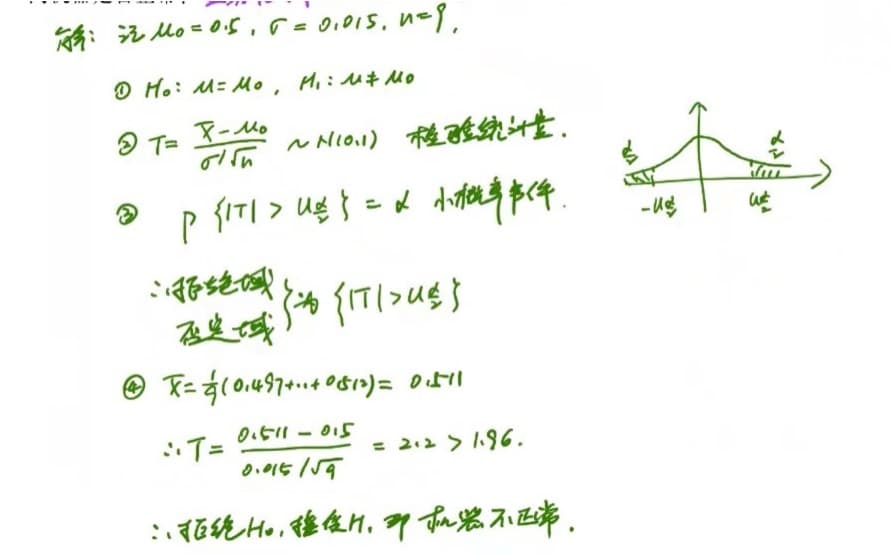 解: 记 μ₀=0.5, σ=0.015, n=9,
① H₀: μ=μ₀, H₁: μ≠μ₀
② T= (X̄-μ₀)/(σ/√n) ~N(0,1) 检验统计量.
③ P{|T|>u_{α/2}}=α 小概率事件.
∴拒绝域
否定域 }为{|T|>u_{α/2}}
α/2 α/2
-u_{α/2} u_{α/2}
④ X̄=1/9(0.497+...+0.512)= 0.511
∴T= (0.511-0.5)/(0.015/√9) = 2.2 > 1.96.
∴拒绝H₀, 接受H₁ 即 机器不正常.